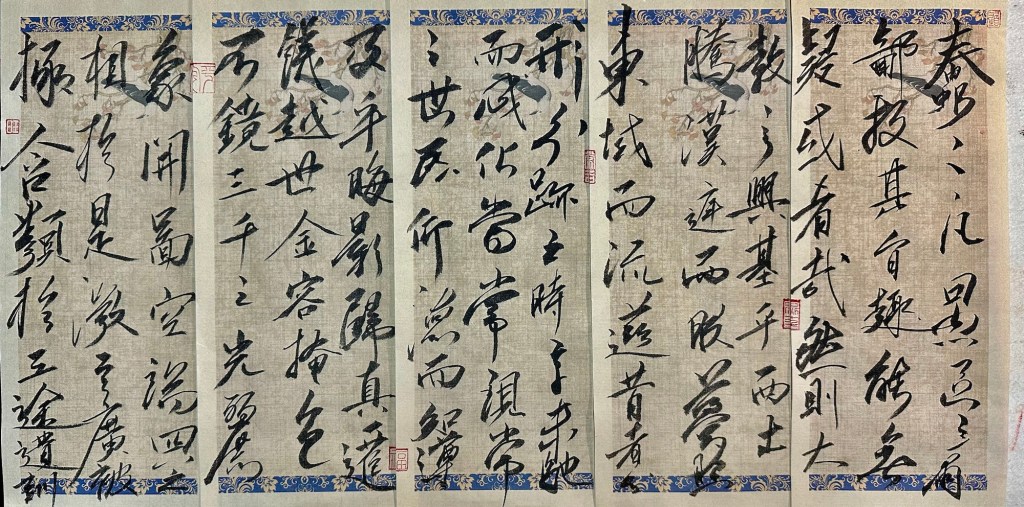 蠢蠢凡愚區區庸
鄙投其旨趣能無
疑或者哉然則大
教之興基乎西土
騰漢庭而皎夢照
東域而流慈昔者分
形分跡之時言未馳
而成化當常現常
之世民仰德而知遵
及乎晦影歸真遷
儀越世金容掩色
不鏡三千之光麗
象開圖空端四八之
相於是微言廣被
拯含類於三途遺訓